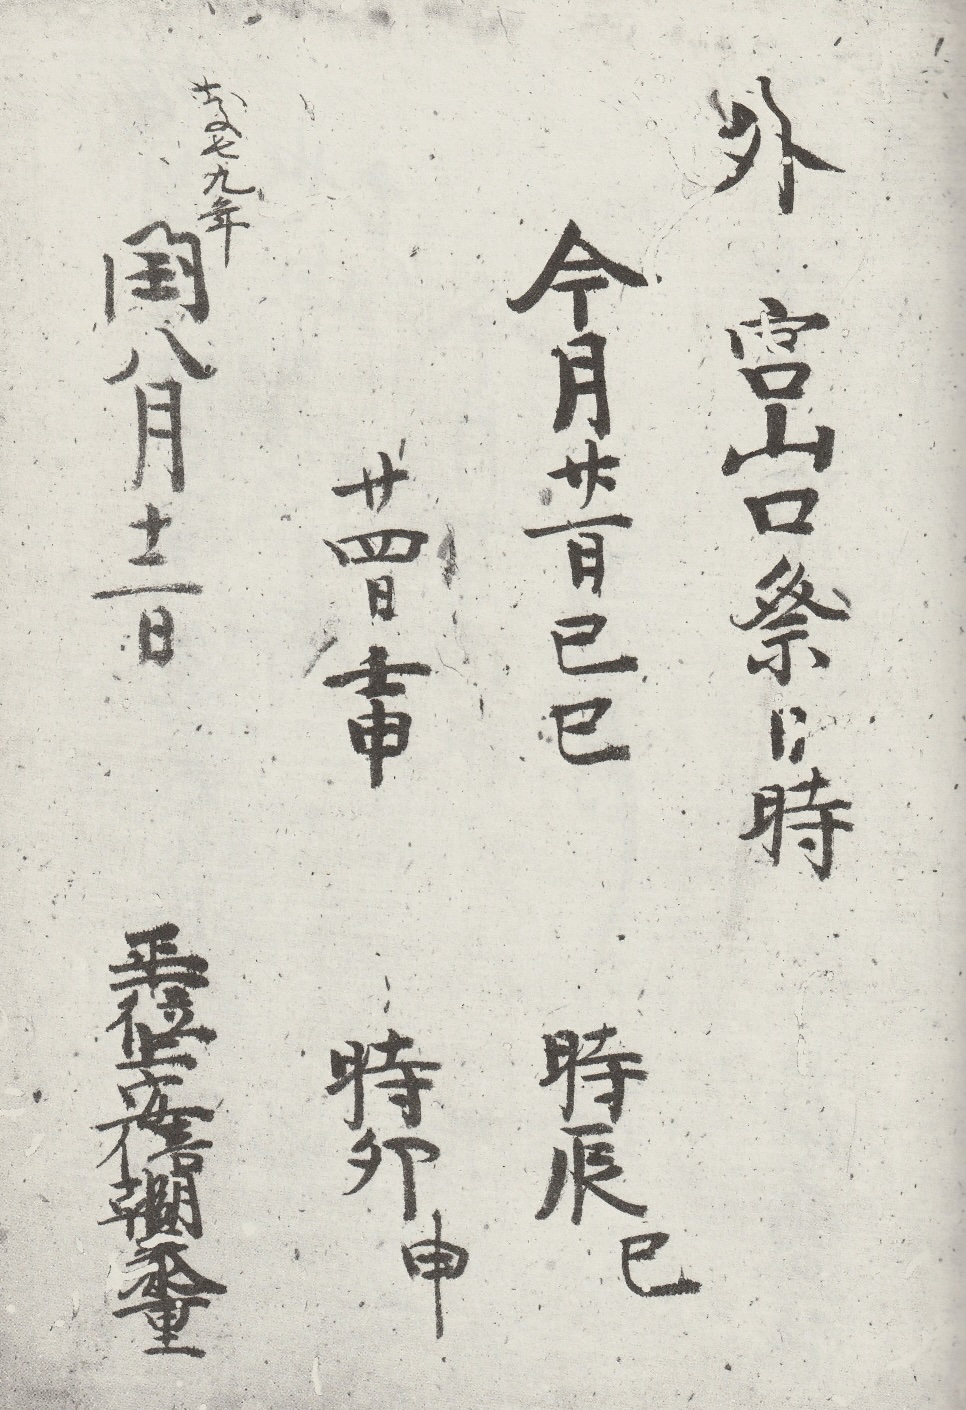 外 宮山口祭日時
今月廿一日己巳 時辰 巳
廿四日壬申 時卯 申
九年
閏八月十二日 位上安倍朝臣泰重